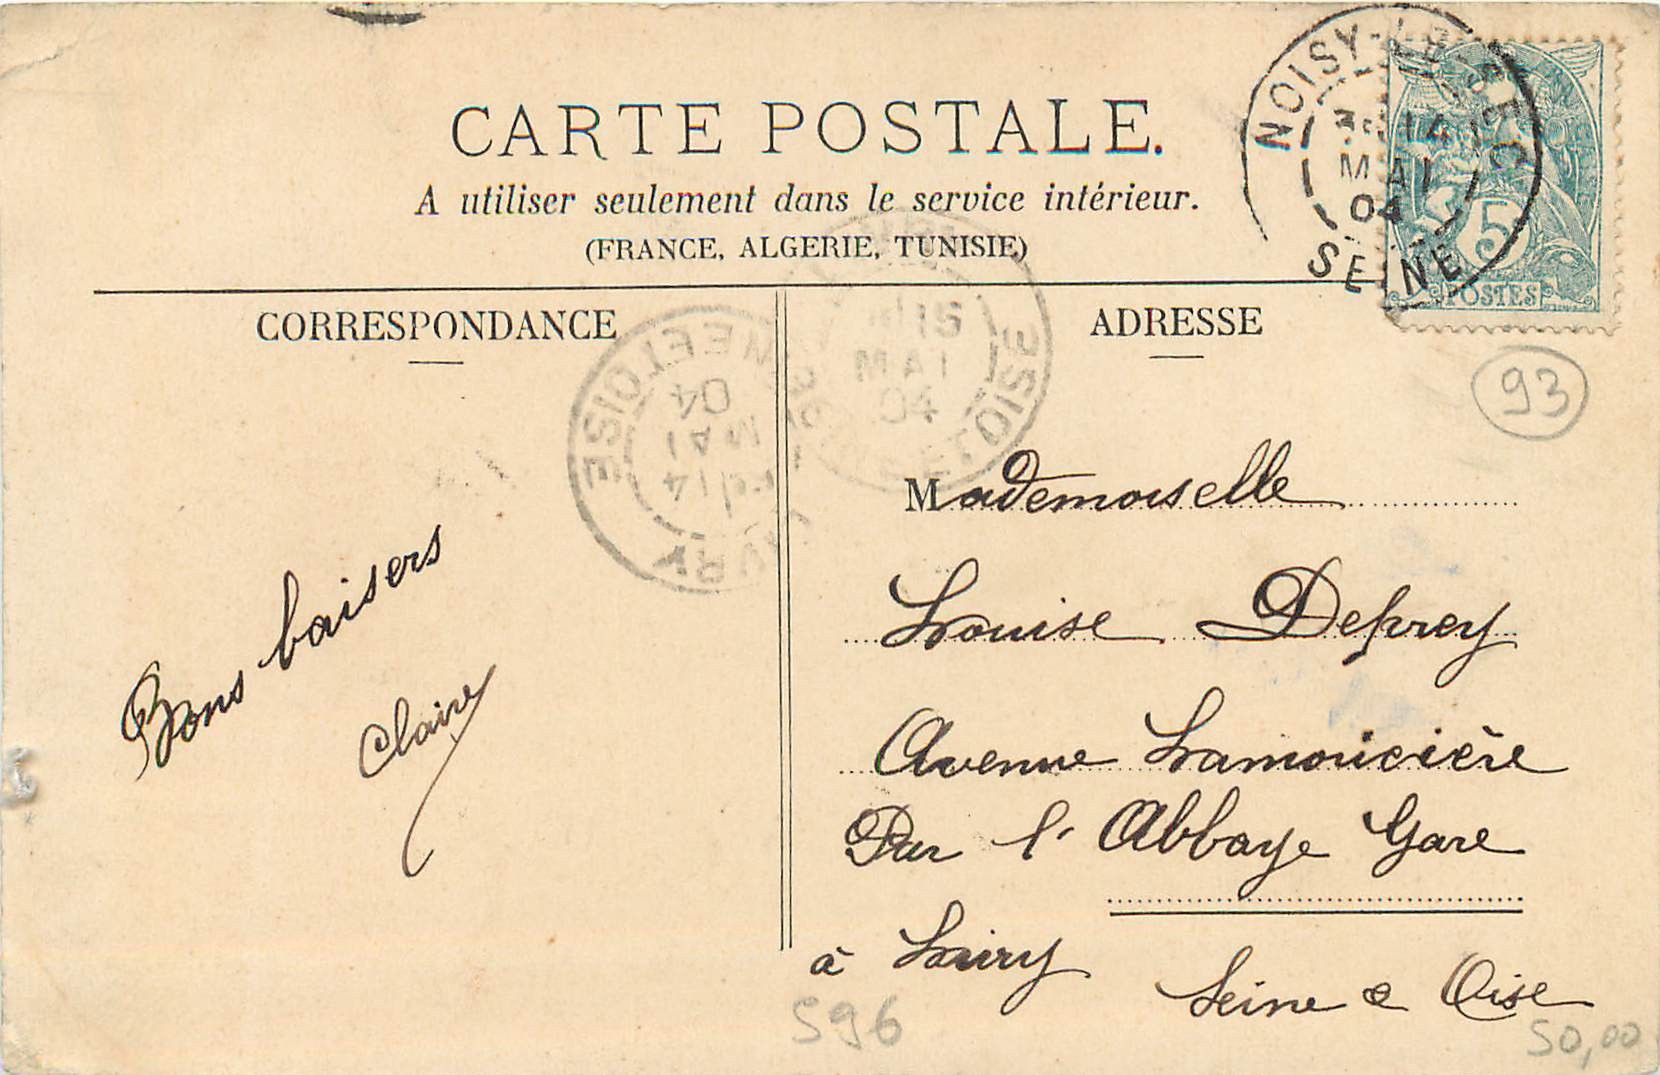 CARTE POSTALE.
A utiliser seulement dans le service intérieur.
(FRANCE, ALGERIE, TUNISIE)
NOISY-LE-SEC
14
MAI
04
SEINE
5
POSTES
CORRESPONDANCE
ADRESSE
15
MAI
04
ET OISE
ET OISE
04
MAI
14
LIVRY
93
Mademoiselle
Louise Deprey
Avenue Lamoricière
Par l'Abbaye Gare
à Livry
Seine & Oise
Bons baisers
Claire
596
50,00